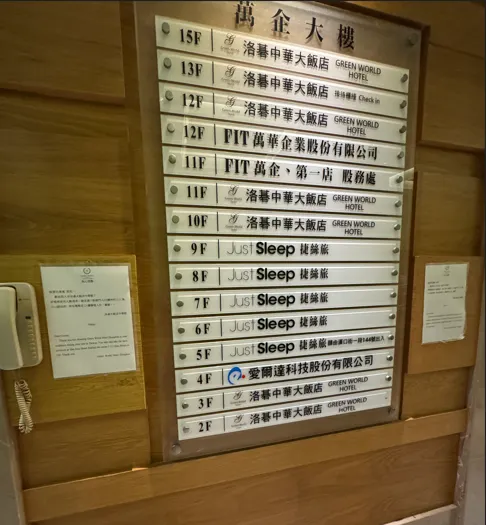 萬企大樓
15F 洛碁中華大飯店 GREEN WORLD HOTEL
13F 洛碁中華大飯店 接待櫃檯 Check in
12F 洛碁中華大飯店 GREEN WORLD HOTEL
12F FIT 萬華企業股份有限公司
11F FIT 萬企、第一店 股務處
11F 洛碁中華大飯店 GREEN WORLD HOTEL
10F 洛碁中華大飯店 GREEN WORLD HOTEL
9F Just Sleep 捷絲旅
8F Just Sleep 捷絲旅
7F Just Sleep 捷絲旅
6F Just Sleep 捷絲旅
5F Just Sleep 捷絲旅 請由漢口街一段144號出入
4F 愛爾達科技股份有限公司
3F 洛碁中華大飯店 GREEN WORLD HOTEL
2F 洛碁中華大飯店 GREEN WORLD HOTEL